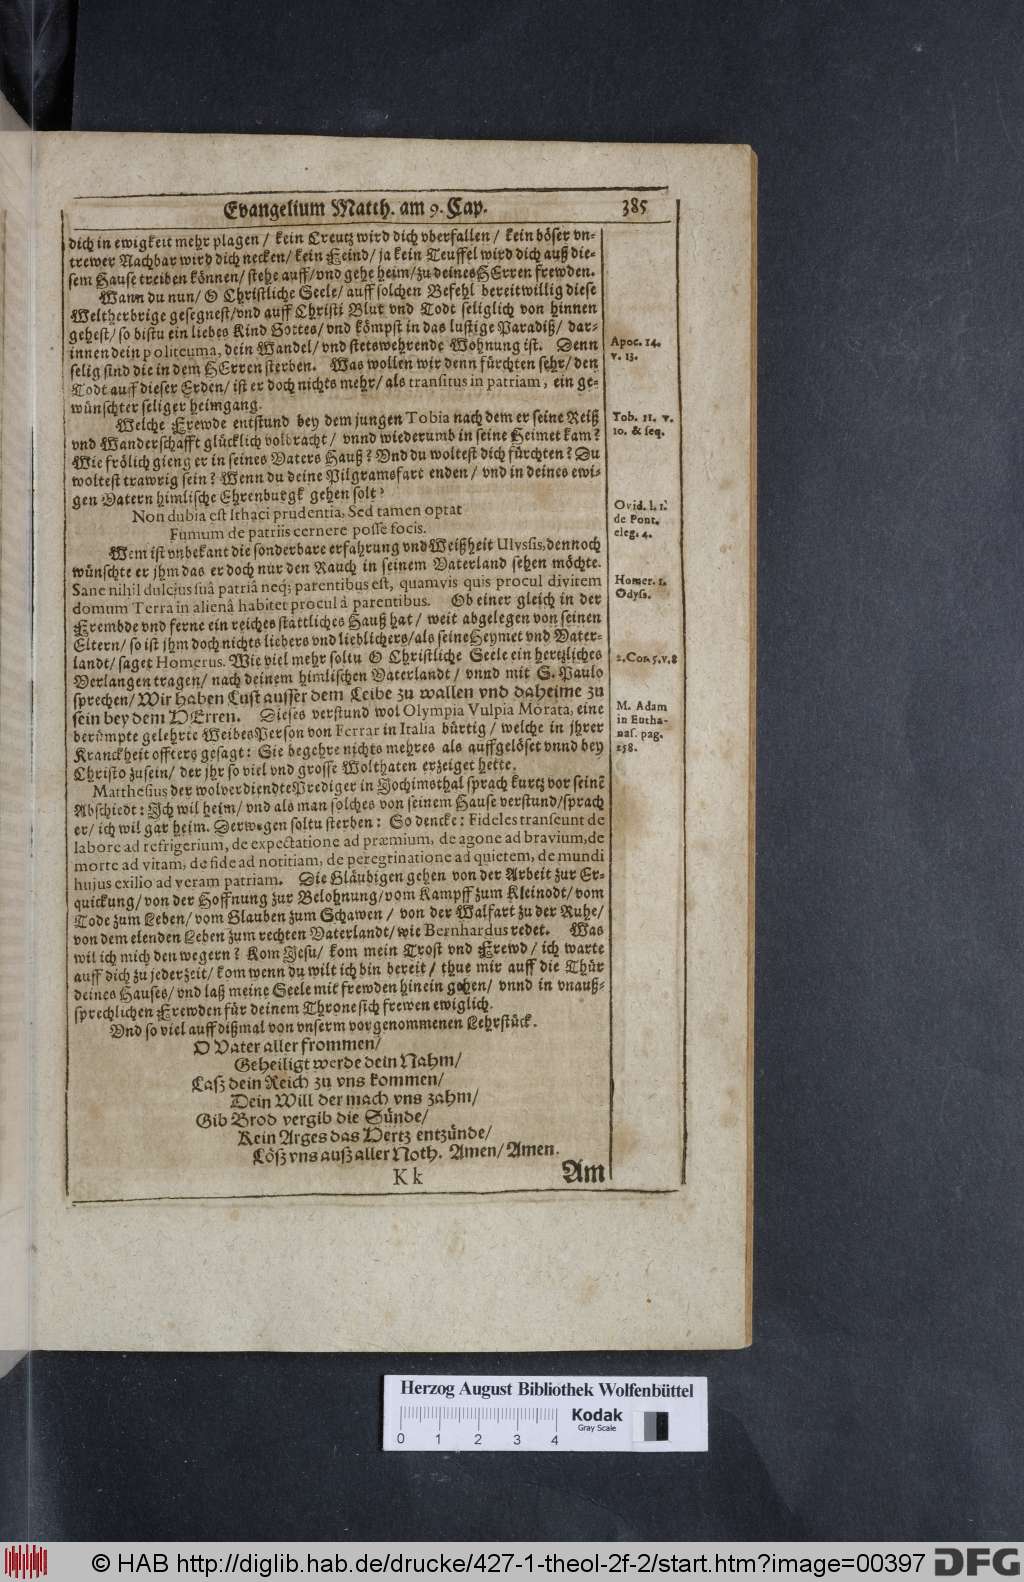 Evangelium Matth. am 9. Cap. 385
dich in ewigkeit mehr plagen / kein Creutz wird dich vberfallen / kein böser vn-
trewer Nachbar wird dich necken / kein Feind / ja kein Teuffel wird dich auß die-
sem Hause treiben können / stehe auff / vnd gehe heim / zu deines HErren frewden.
Wann du nun / O Christliche Seele / auff solchen Befehl bereitwillig diese
Weltherbrige gesegnest / vnd auff Christi Blut vnd Todt seliglich von hinnen
gehest / so bistu ein liebes Kind Gottes / vnd kömpst in das lustige Paradiß / dar-
innen dein politeuma, dein Wandel / vnd stetswehrende Wohnung ist. Denn
selig sind die in dem HErren sterben. Was wollen wir denn fürchten sehr / den
Todt auff dieser Erden / ist er doch nichts mehr / als transitus in patriam, ein ge-
wünschter seliger heimgang.
Apoc. 14.
v. 13.
Welche Frewde entstund bey dem jungen Tobia nach dem er seine Reiß
vnd Wanderschafft glücklich volbracht / vnnd wiederumb in seine Heimet kam?
Wie frölich gieng er in seines Vaters Hauß? Vnd du woltest dich fürchten? Du
woltest trawrig sein? Wenn du deine Pilgramsfart enden / vnd in deines ewi-
gen Vatern himlische Ehrenburgk gehen solt?
Tob. 11. v.
10. & seq.
Non dubia est Ithaci prudentia, Sed tamen optat
Fumum de patriis cernere posse focis.
Ovid. l. 1.
de Pont.
eleg. 4.
Wem ist vnbekant die sonderbare erfahrung vnd Weißheit Ulyssis, dennoch
wünschte er jhm das er doch nur den Rauch in seinem Vaterland sehen möchte.
Sane nihil dulcius suâ patriâ neq; parentibus est, quamvis quis procul divitem
domum Terra in alienâ habitet procul â parentibus. Ob einer gleich in der
Frembde vnd ferne ein reiches stattliches Hauß hat / weit abgelegen von seinen
Eltern / so ist jhm doch nichts liebers vnd lieblichers / als seine Heymet vnd Vater-
landt / saget Homerus. Wie viel mehr soltu O Christliche Seele ein hertzliches
Verlangen tragen / nach deinem himlischen Vaterlandt / vnnd mit S. Paulo
sprechen / Wir haben Lust ausser dem Leibe zu wallen vnd daheime zu
sein bey dem HErren. Dieses verstund wol Olympia Vulpia Morata, eine
berümpte gelehrte WeibesPerson von Ferrar in Italia bürtig / welche in jhrer
Kranckheit offters gesagt: Sie begehre nichts mehres als auffgelöset vnnd bey
Christo zusein / der jhr so viel vnd grosse Wolthaten erzeiget hette.
Homer. 1.
Odyss.
2. Cor. 5. v. 8
M. Adam
in Eutha-
nas. pag.
258.
Matthesius der wolverdiendte Prediger in Jochimsthal sprach kurtz vor seinē
Abschiedt: Ich wil heim / vnd als man solches von seinem Hause verstund / sprach
er / ich wil gar heim. Derwegen soltu sterben: So dencke: Fideles transeunt de
labore ad refrigerium, de expectatione ad præmium, de agone ad bravium, de
morte ad vitam, de fide ad notitiam, de peregrinatione ad quietem, de mundi
hujus exilio ad veram patriam. Die Gläubigen gehen von der Arbeit zur Er-
quickung / von der Hoffnung zur Belohnung / vom Kampff zum Kleinodt / vom
Tode zum Leben / vom Glauben zum Schawen / von der Walfart zu der Ruhe /
von dem elenden Leben zum rechten Vaterlandt / wie Bernhardus redet. Was
wil ich mich den wegern? Kom Jesu / kom mein Trost vnd Frewd / ich warte
auff dich zu jederzeit / kom wenn du wilt ich bin bereit / thue mir auff die Thür
deines Hauses / vnd laß meine Seele mit frewden hinein gehen / vnnd in vnauß-
sprechlichen Frewden für deinem Throne sich frewen ewiglich.
Vnd so viel auff dißmal von vnserm vorgenommenen Lehrstück.
O Vater aller frommen /
Geheiligt werde dein Nahm /
Laß dein Reich zu vns kommen /
Dein Will der mach vns zahm /
Gib Brod vergib die Sünde /
Kein Arges das Hertz entzünde /
Löß vns auß aller Noth. Amen / Amen.
K k Am
Herzog August Bibliothek Wolfenbüttel
0 1 2 3 4
Kodak
Gray Scale
© HAB http://diglib.hab.de/drucke/427-1-theol-2f-2/start.htm?image=00397
DFG